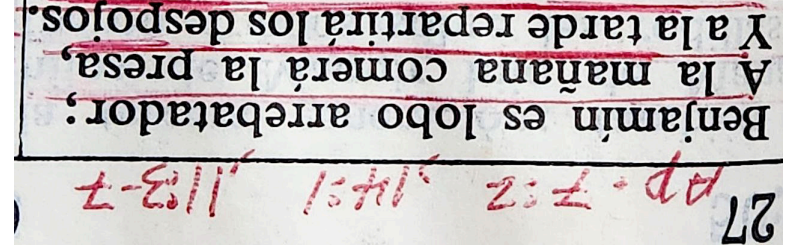 27 Ap. 7:2 ; 14:1 ; 11:3-7
Benjamín es lobo arrebatador;
A la mañana comerá la presa,
Y a la tarde repartirá los despojos.